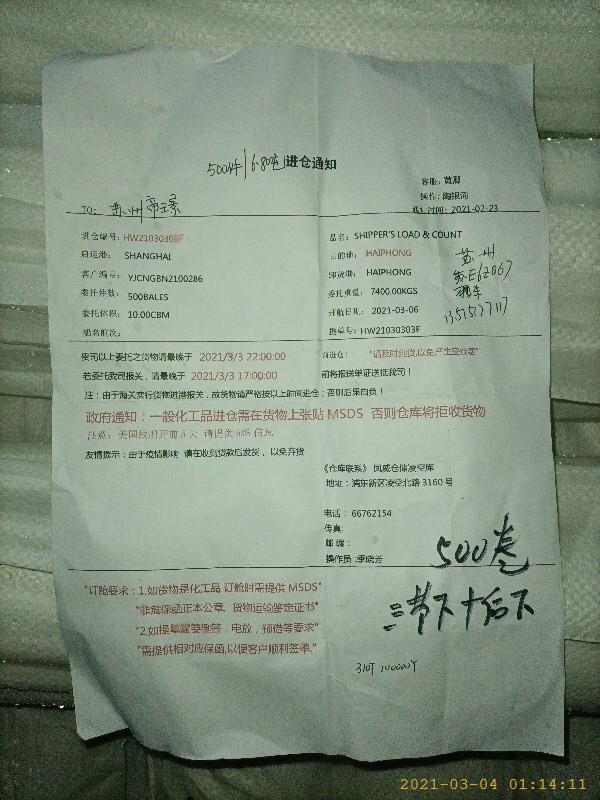 500件/6.80吨 进仓通知
客服：黄卿
操作：陶银河
通知时间：2021-02-23
TO：苏州
进仓编号：HW21030303F
品名：SHIPPER'S LOAD & COUNT
启运港： SHANGHAI
目的地： HAIPHONG
苏州
客户编号： YJCNGBN2100286
卸货港： HAIPHONG
苏E62067
委托件数： 500BALES
委托重量： 7400.00KGS
委托体积： 10.00CBM
开航日期： 2021-03-06
船名航次：
提单号：HW21030303F
我司以上委托之货物请最晚于 2021/3/3 22:00:00
前进仓： "请及时到货,以免产生空仓费"
若委托我司报关，请最晚于 2021/3/3 17:00:00
前将报送单证送抵我司！
注：由于海关实行货物进港报关，故货物请严格按以上时间进仓；否则后果自负！
政府通知：一般化工品进仓需在货物上张贴 MSDS 否则仓库将拒收货物
注意：美国线船开前5天 请提供 AMS 信息
友情提示：由于疫情影响 请在收到货款后发货，以免弃货
《仓库联系》 风威仓储凌空库
地址：浦东新区凌空北路 3160 号
电话：66762154
传真:
邮编：
操作员:季晓芳
500卷
"订舱要求：1.如货物是化工品 订舱时需提供 MSDS"
"非危保函正本公章，货物运输鉴定证书"
"2.如提单需要倒签，电放，预借等要求"
"需提供相对应保函,以便客户顺利签单."
2021-03-04 01:14:11